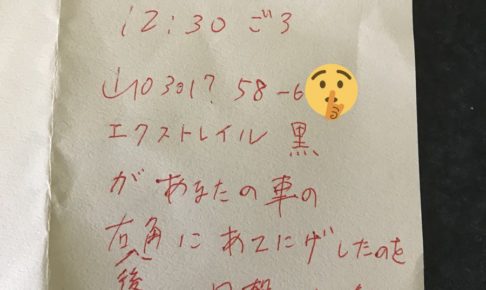 12:30 ごろ
山口301? 58-6
エクストレイル 黒
が あなたの 車の
右角に あてにげしたのを
後